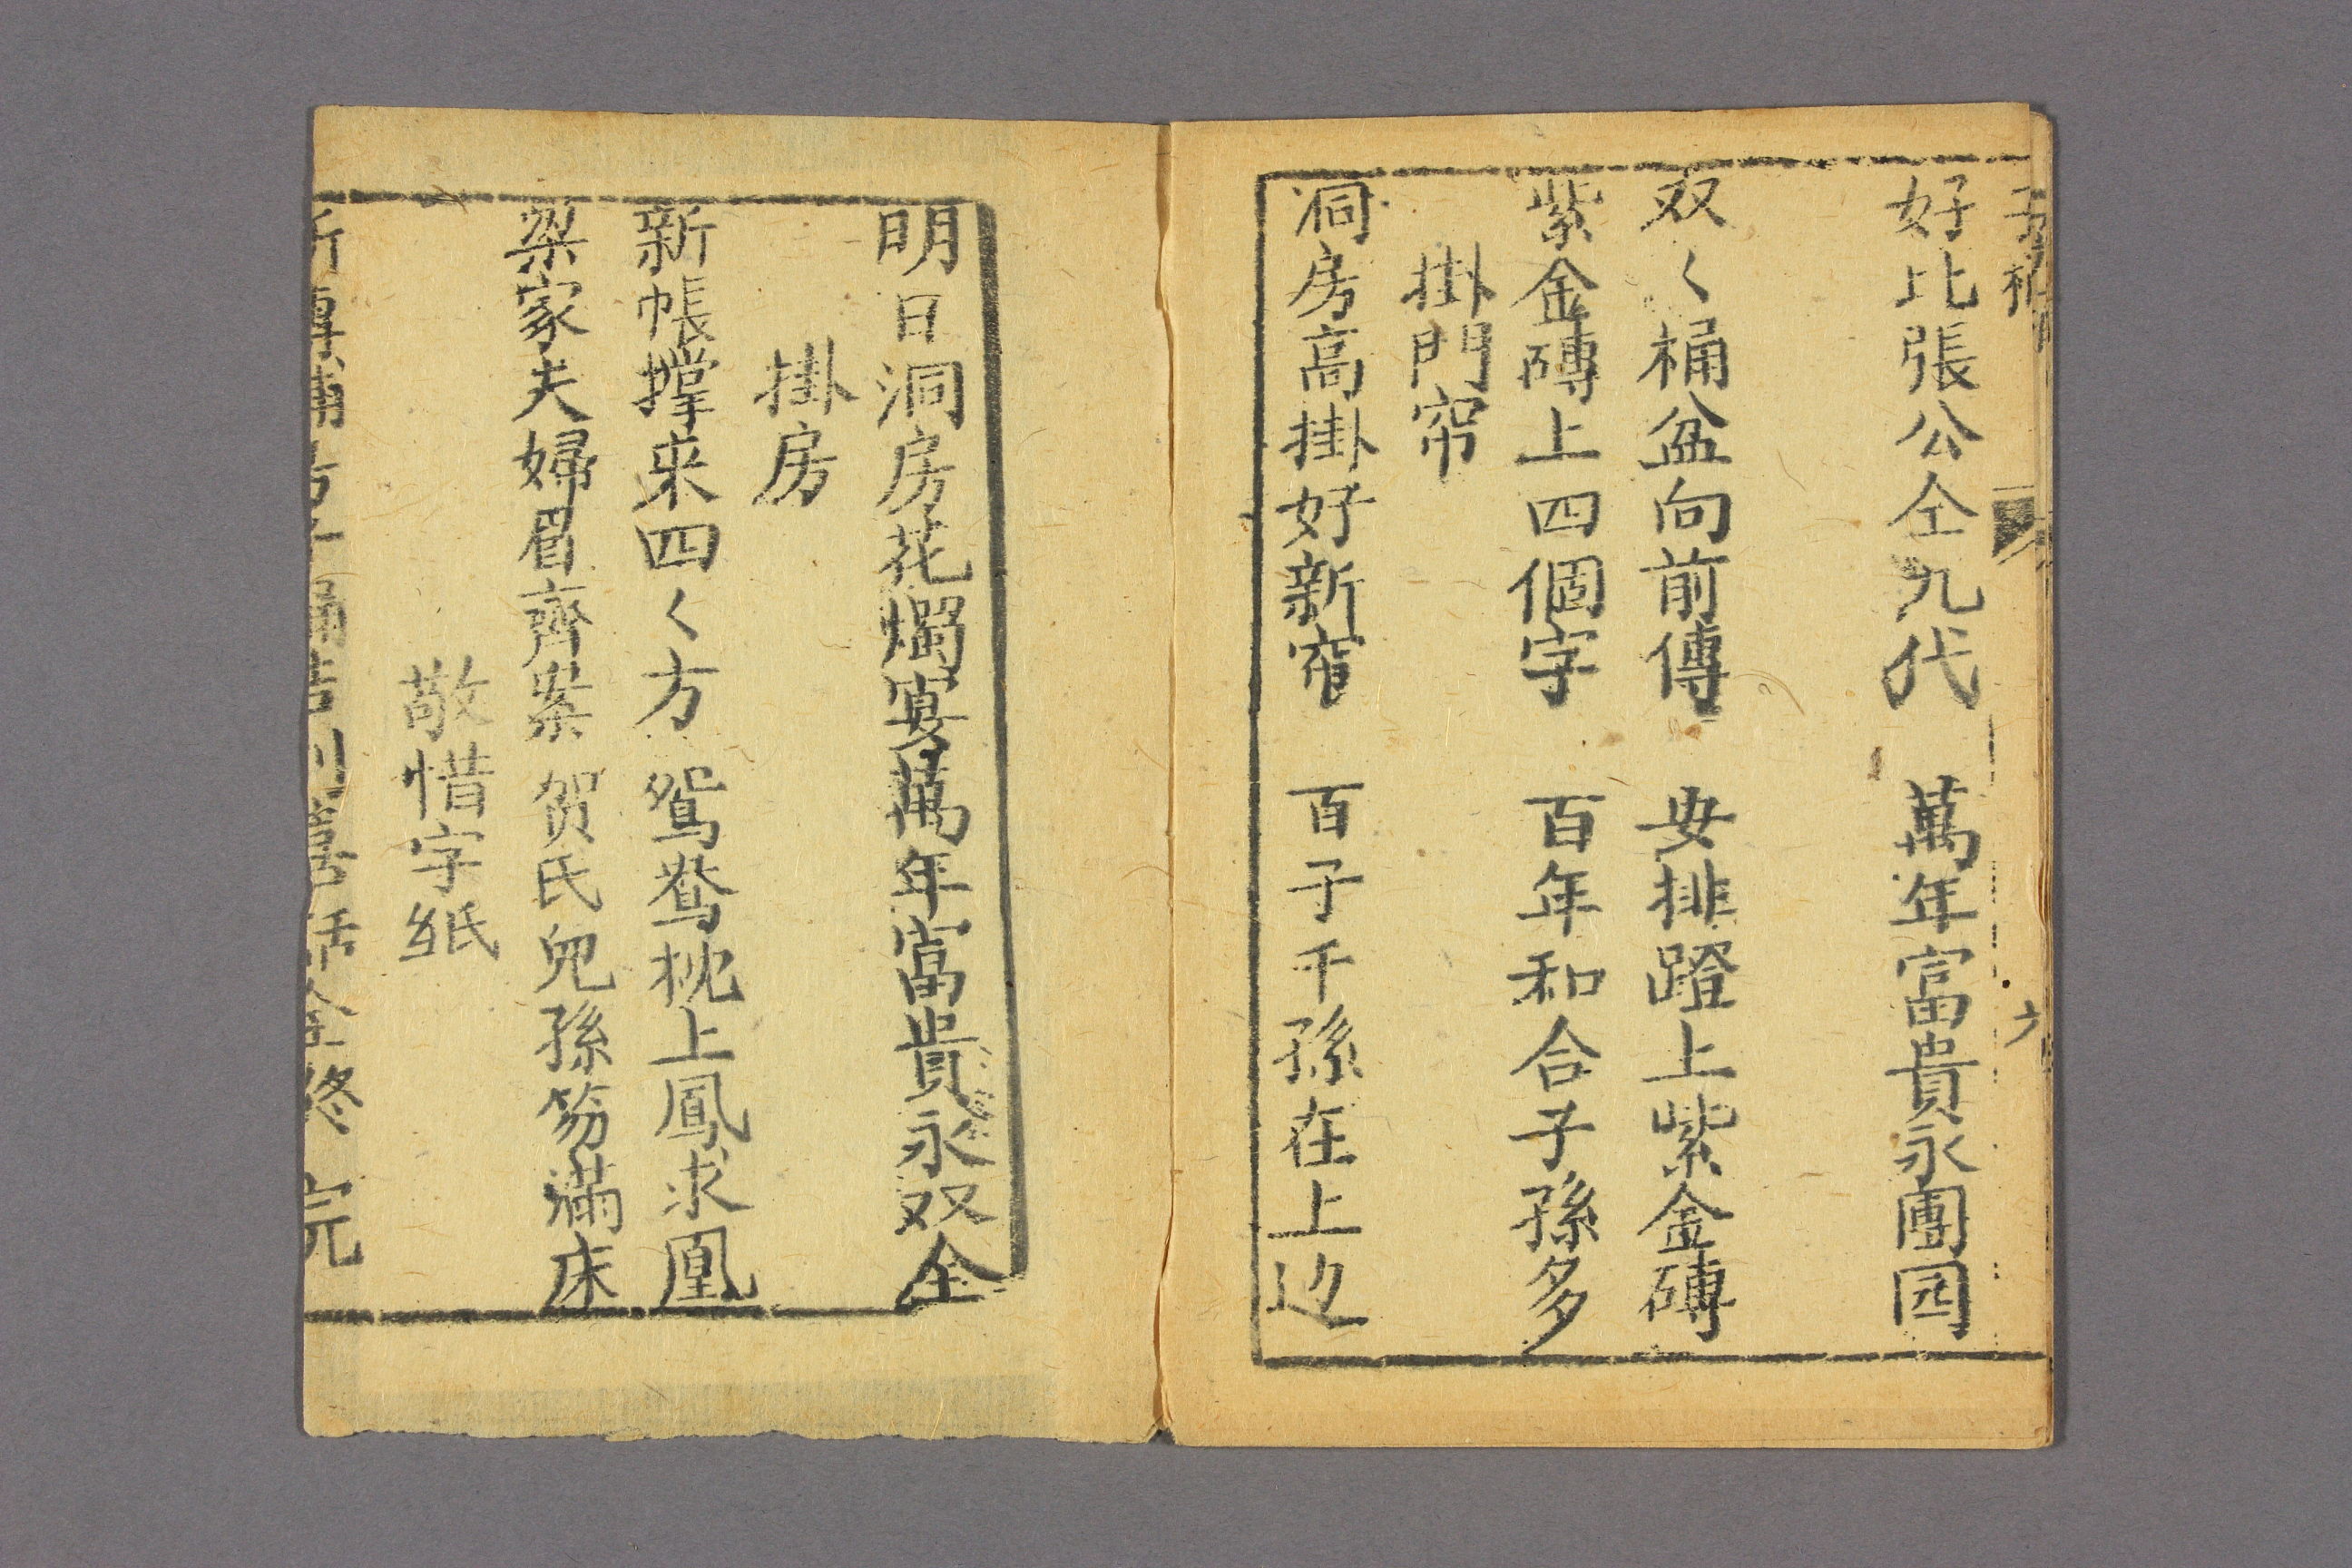 六
好比張公仝九代 萬年富貴永團园
双〱桶盆向前傳 安排蹬上紫金磚
紫金磚上四個字 百年和合子孫多
掛門帘
洞房高掛好新帘 百子千孫在上边
明日洞房花燭宴萬年富貴永双全
掛房
新帳撑来四〱方 鴛鴦枕上鳳求凰
梁家夫婦眉齊案 贺氏兒孫笏滿床
敬惜字紙
喜話全終 完